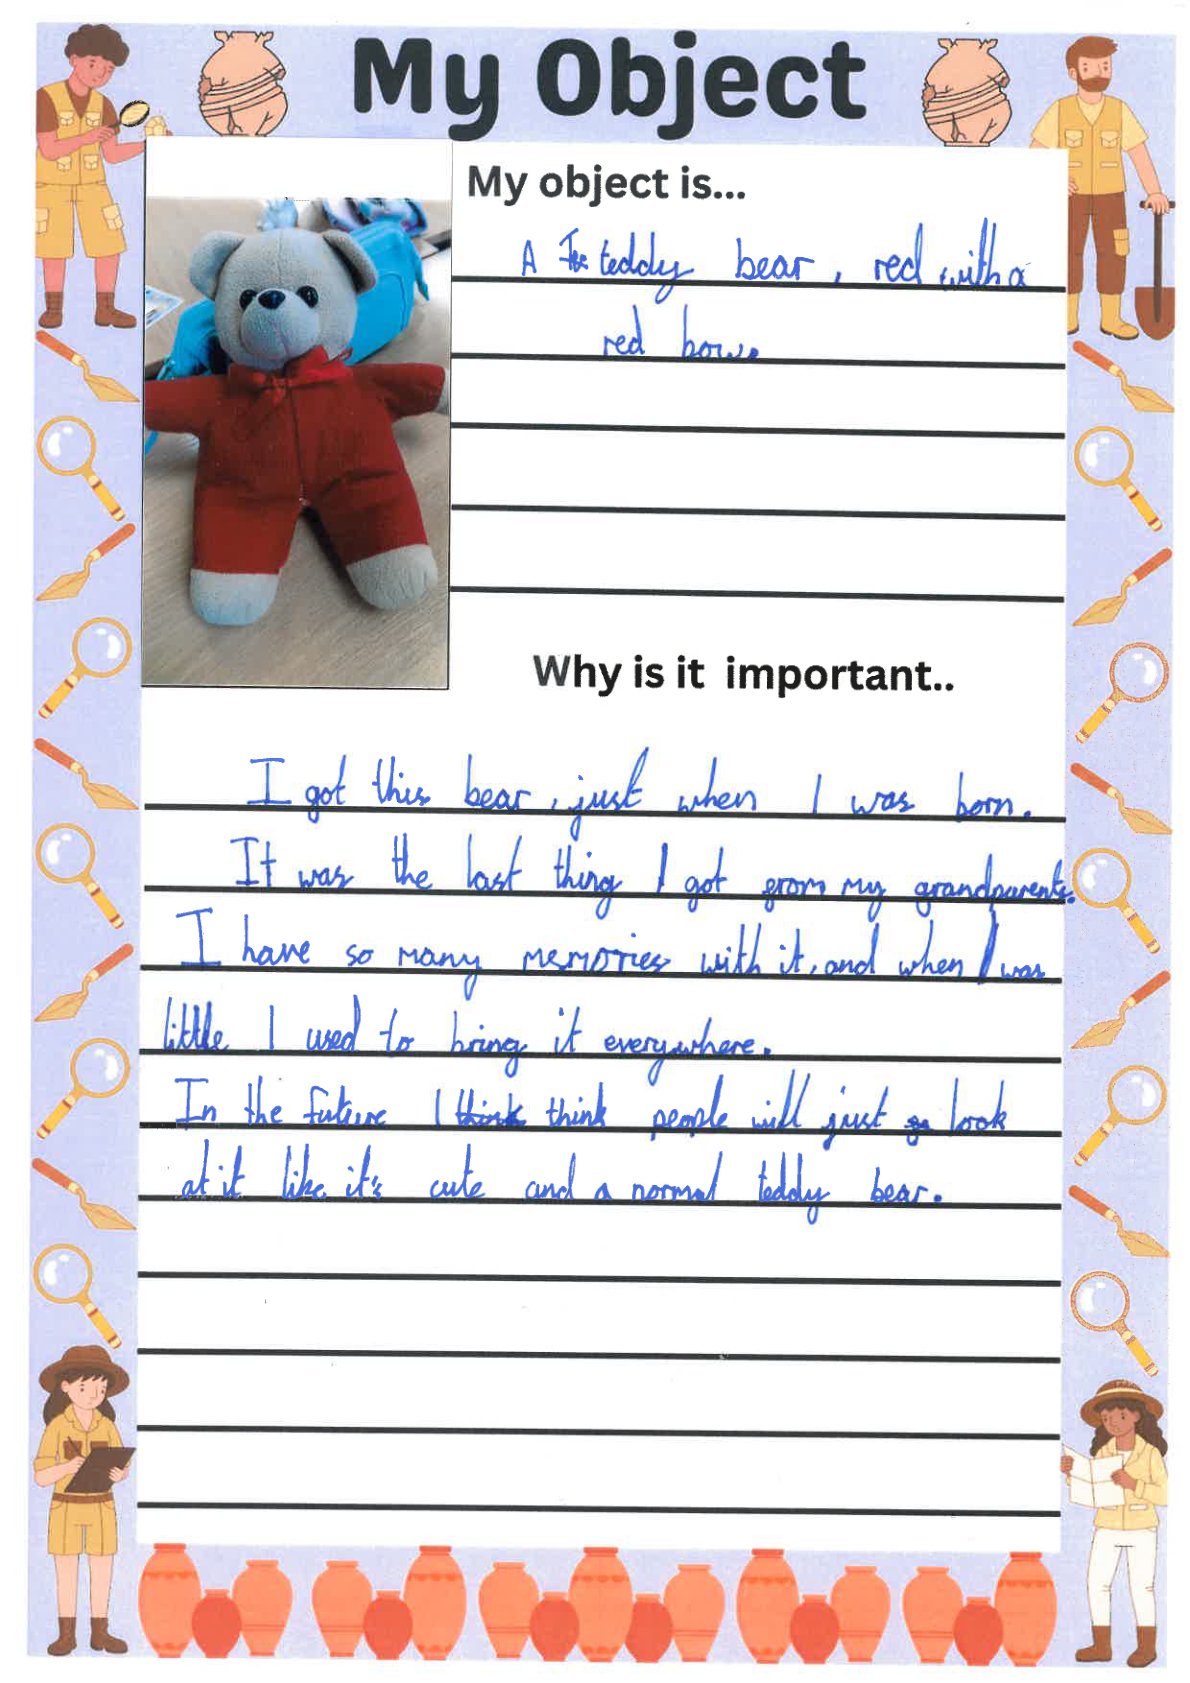 My Object
My object is...
A teddy bear, red with a
red bow.
Why is it important..
I got this bear, just when I was born.
It was the last thing I got from my grandparents.
I have so many memories with it, and when I was
little I used to bring it everywhere.
In the future I think think people will just go look
at it like it's cute and a normal teddy bear.